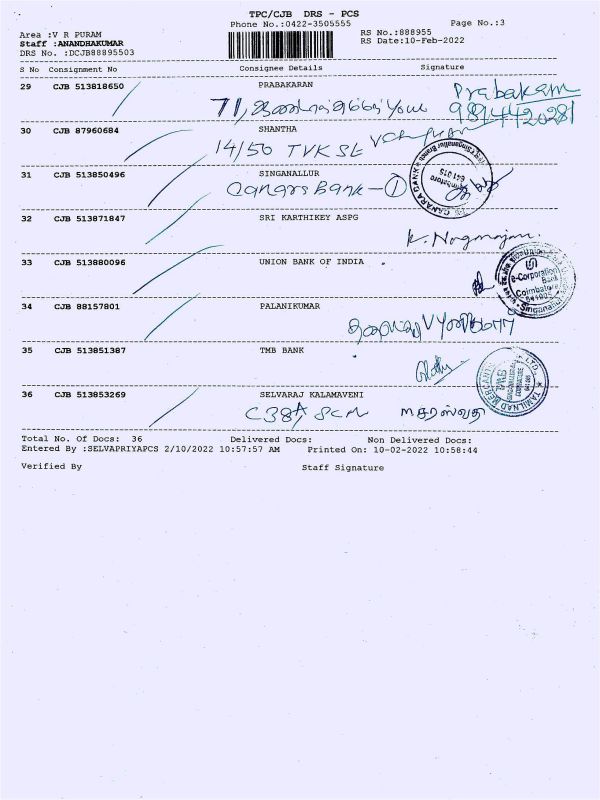 TPC/CJB DRS - PCS
Phone No.:0422-3505555
Page No.:3
Area :V R PURAM
RS No.:888955
Staff :ANANDHAKUMAR
RS Date:10-Feb-2022
DRS No. :DCJB88895503
S No Consignment No Consignee Details Signature
29 CJB 513818650 PRABAKARAN
Prabakaran
71,
9894420281
30 CJB 87960684 SHANTHA
14/50 TVK St
31 CJB 513850496 SINGANALLUR
Canara Bank - ①
CANARA BANK
641 015
32 CJB 513871847 SRI KARTHIKEY ASPG
K. Nagarajan.
33 CJB 513880096 UNION BANK OF INDIA
e-Corporation
Bank
Coimbatore
641005
34 CJB 88157801 PALANIKUMAR
35 CJB 513851387 TMB BANK
TAMILNAD MERCANTILE
LTD.
36 CJB 513853269 SELVARAJ KALAMAVENI
C38A SCM
Total No. Of Docs: 36 Delivered Docs: Non Delivered Docs:
Entered By :SELVAPRIYAPCS 2/10/2022 10:57:57 AM Printed On: 10-02-2022 10:58:44
Verified By Staff Signature